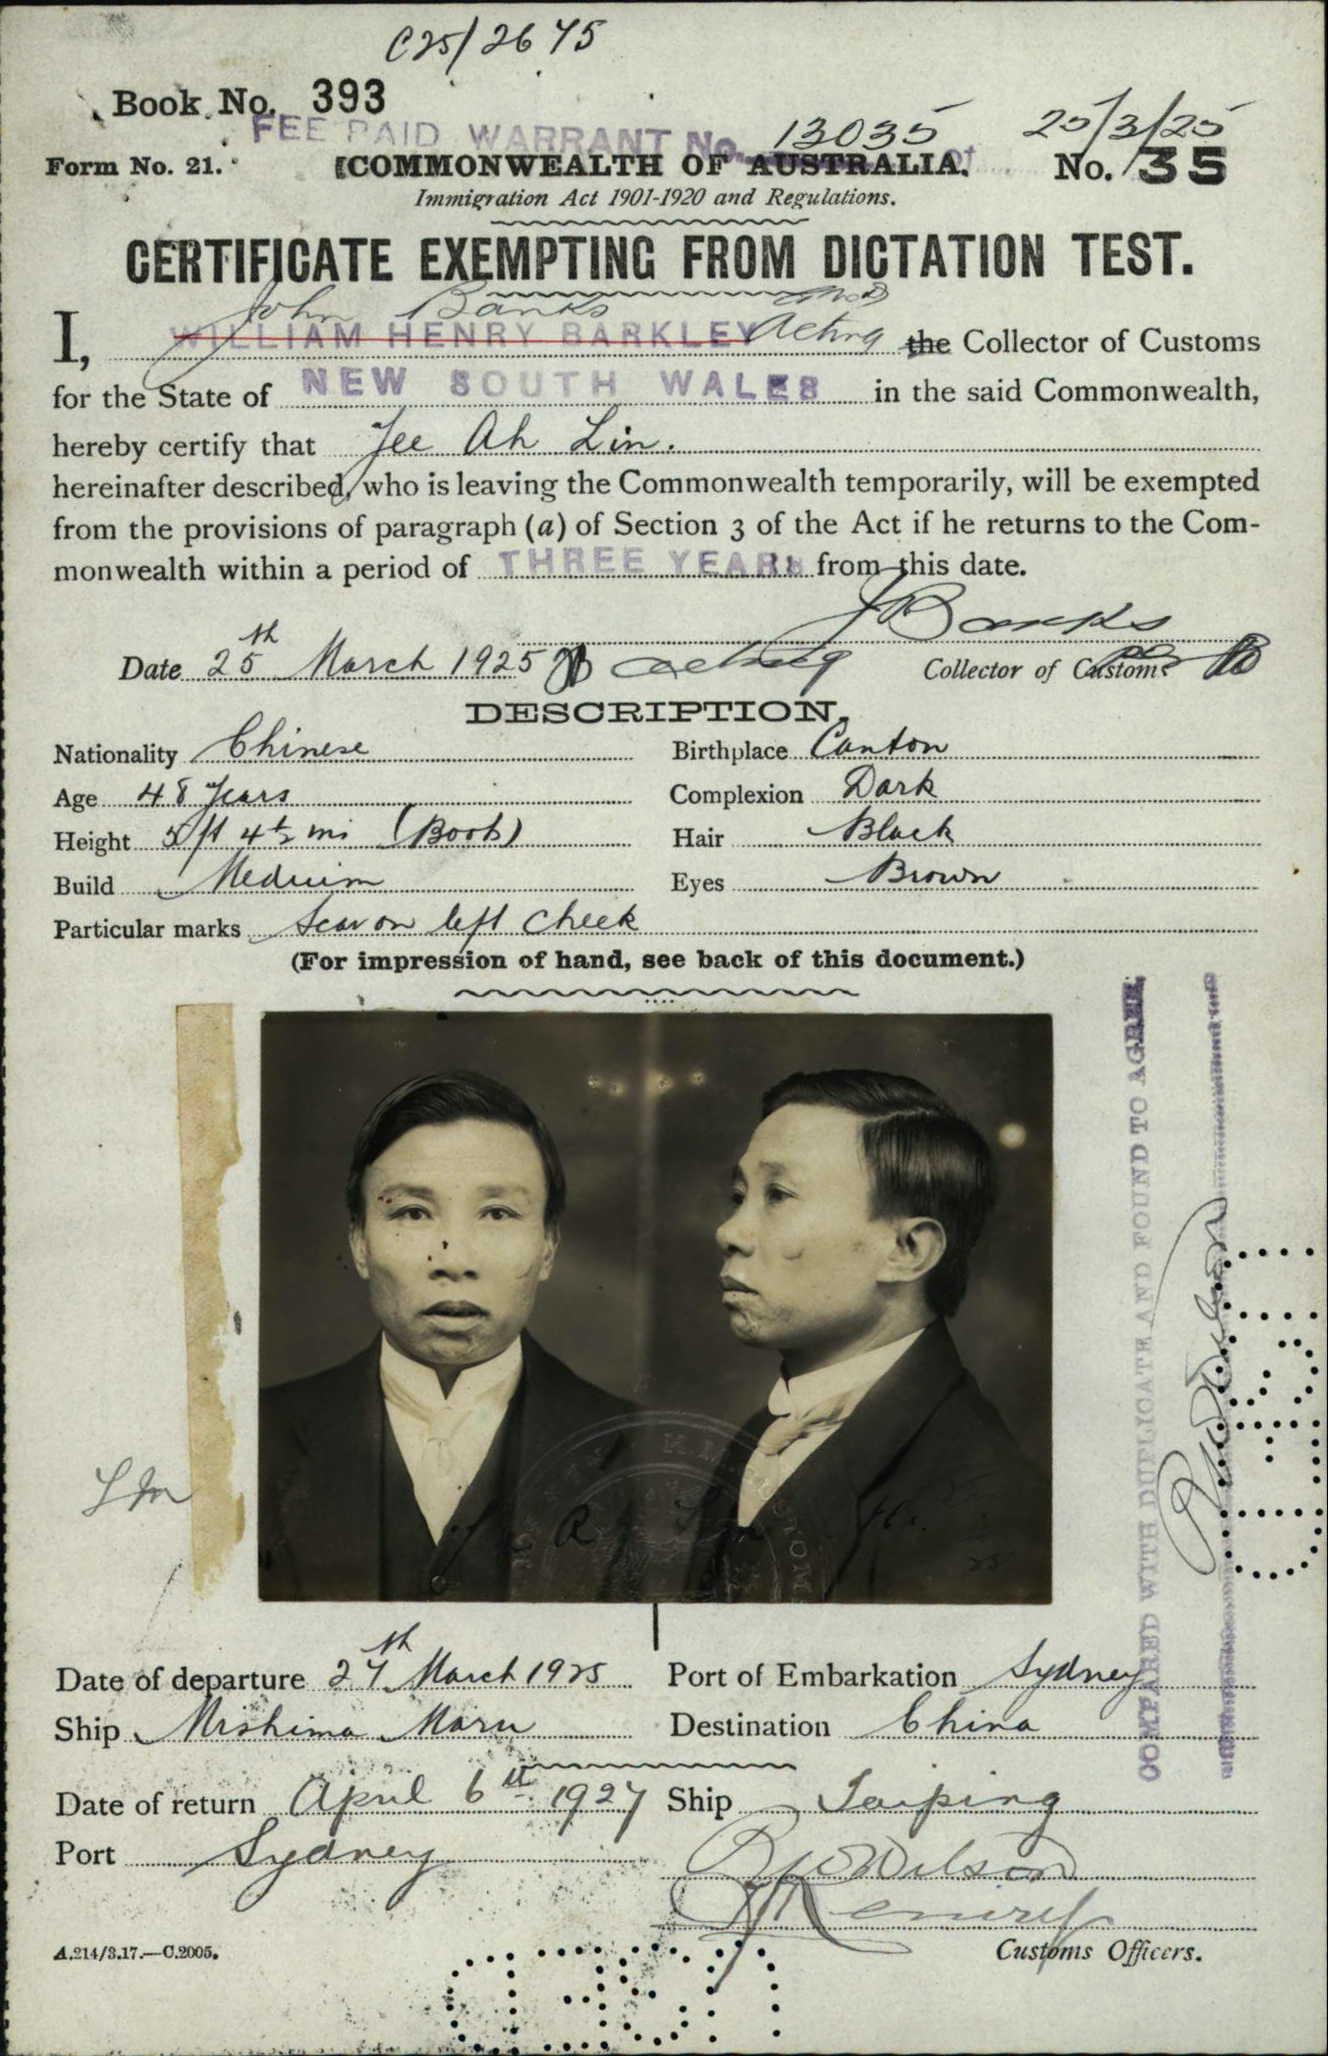 C25/2675
Book No. 393
FEE PAID WARRANT No. 13035 of 25/3/25
Form No. 21. COMMONWEALTH OF AUSTRALIA. No. 35
Immigration Act 1901-1920 and Regulations.
CERTIFICATE EXEMPTING FROM DICTATION TEST.
John Banks
I, WILLIAM HENRY BARKLEY Acting the Collector of Customs
for the State of NEW SOUTH WALES in the said Commonwealth,
hereby certify that Jee Ah Lin.
hereinafter described, who is leaving the Commonwealth temporarily, will be exempted
from the provisions of paragraph (a) of Section 3 of the Act if he returns to the Com-
monwealth within a period of THREE YEARS from this date.
J Banks
Date 25th March 1925 JB acting Collector of Customs
DESCRIPTION.
Nationality Chinese Birthplace Canton
Age 48 Years Complexion Dark
Height 5 ft 4½ ins (Boots) Hair Black
Build Medium Eyes Brown
Particular marks Scar on left cheek
(For impression of hand, see back of this document.)
COMPARED WITH DUPLICATE AND FOUND TO AGREE.
Date of departure 27th March 1925 Port of Embarkation Sydney
Ship Mishima Maru Destination China
Date of return April 6th 1927 Ship Taiping
Port Sydney
Wilson
A.214/3.17.—C.2005. Customs Officers.